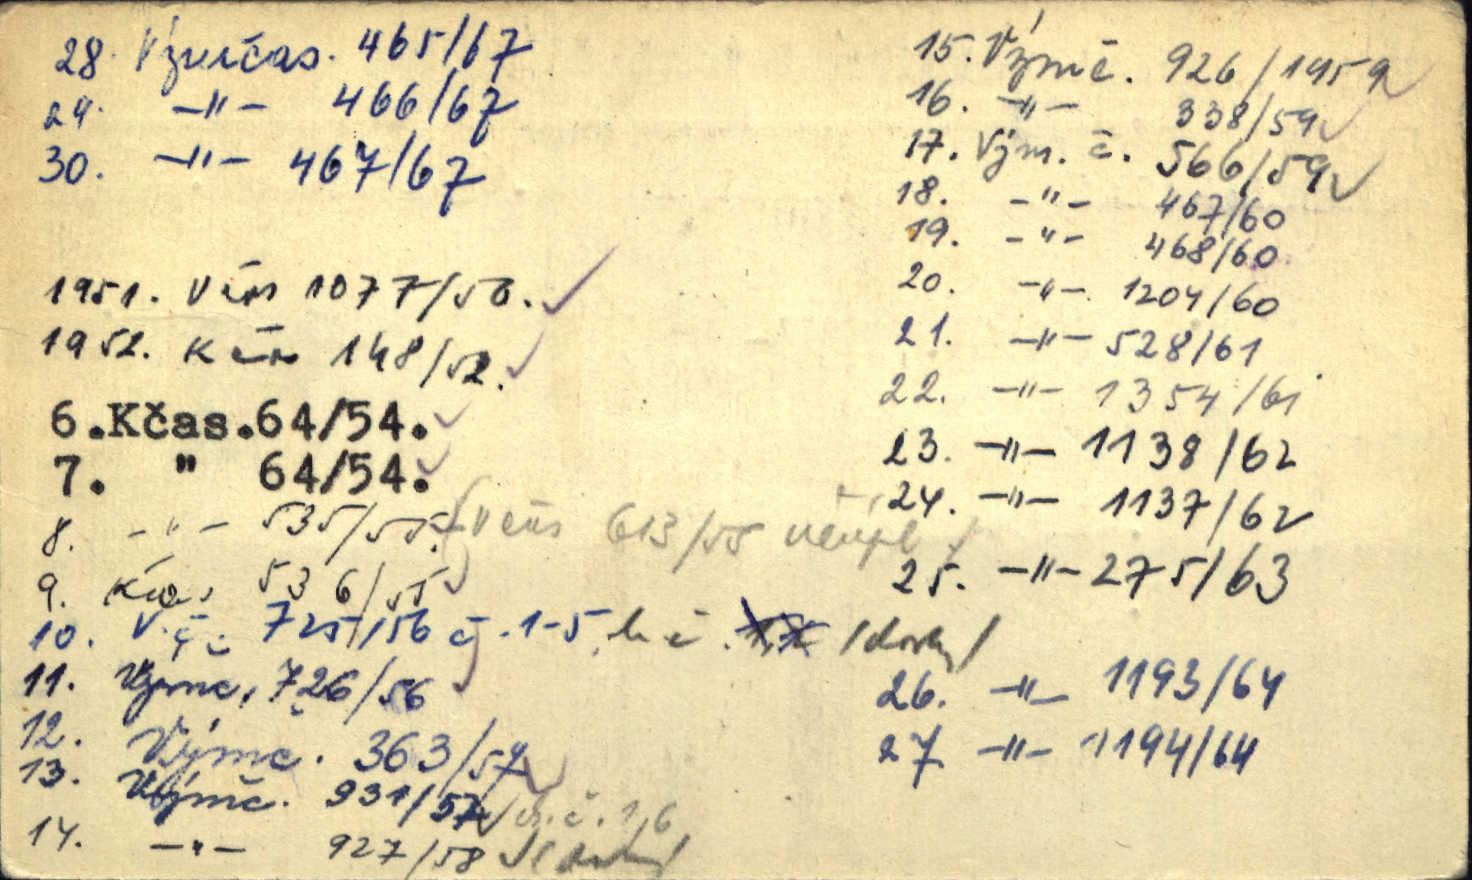 28. Výměčas. 465/67
29. -"- 466/67
30. -"- 467/67
1951. Včas 1077/50.
1952. Kčas 148/52.
6.Kčas.64/54.
7. " 64/54.
8. -"- 535/55. Včas 613/55 neúpl
9. Kčas 536/55
10. V.č. 725/56 č. 1-5, /dor/
11. Výmč, 726/56
12. Výmč. 363/57
13. Výmč. 931/57 č. 1,6
14. -"- 927/58
15. Výmč. 926/1959
16. -"- 338/59
17. Vým. č. 566/59
18. -"- 467/60
19. -"- 468/60
20. -"- 1204/60
21. -"- 528/61
22. -"- 1354/61
23. -"- 1138/62
24. -"- 1137/62
25. -"- 275/63
26. -"- 1193/64
27 -"- 1194/64